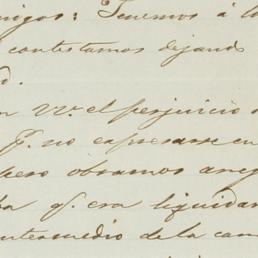 migos: Tenemos á la
contestamos dejando
d.
n VV. el perjuicio
q. no expresarse en
pero obramos
q. era liquidar
intermedio de la